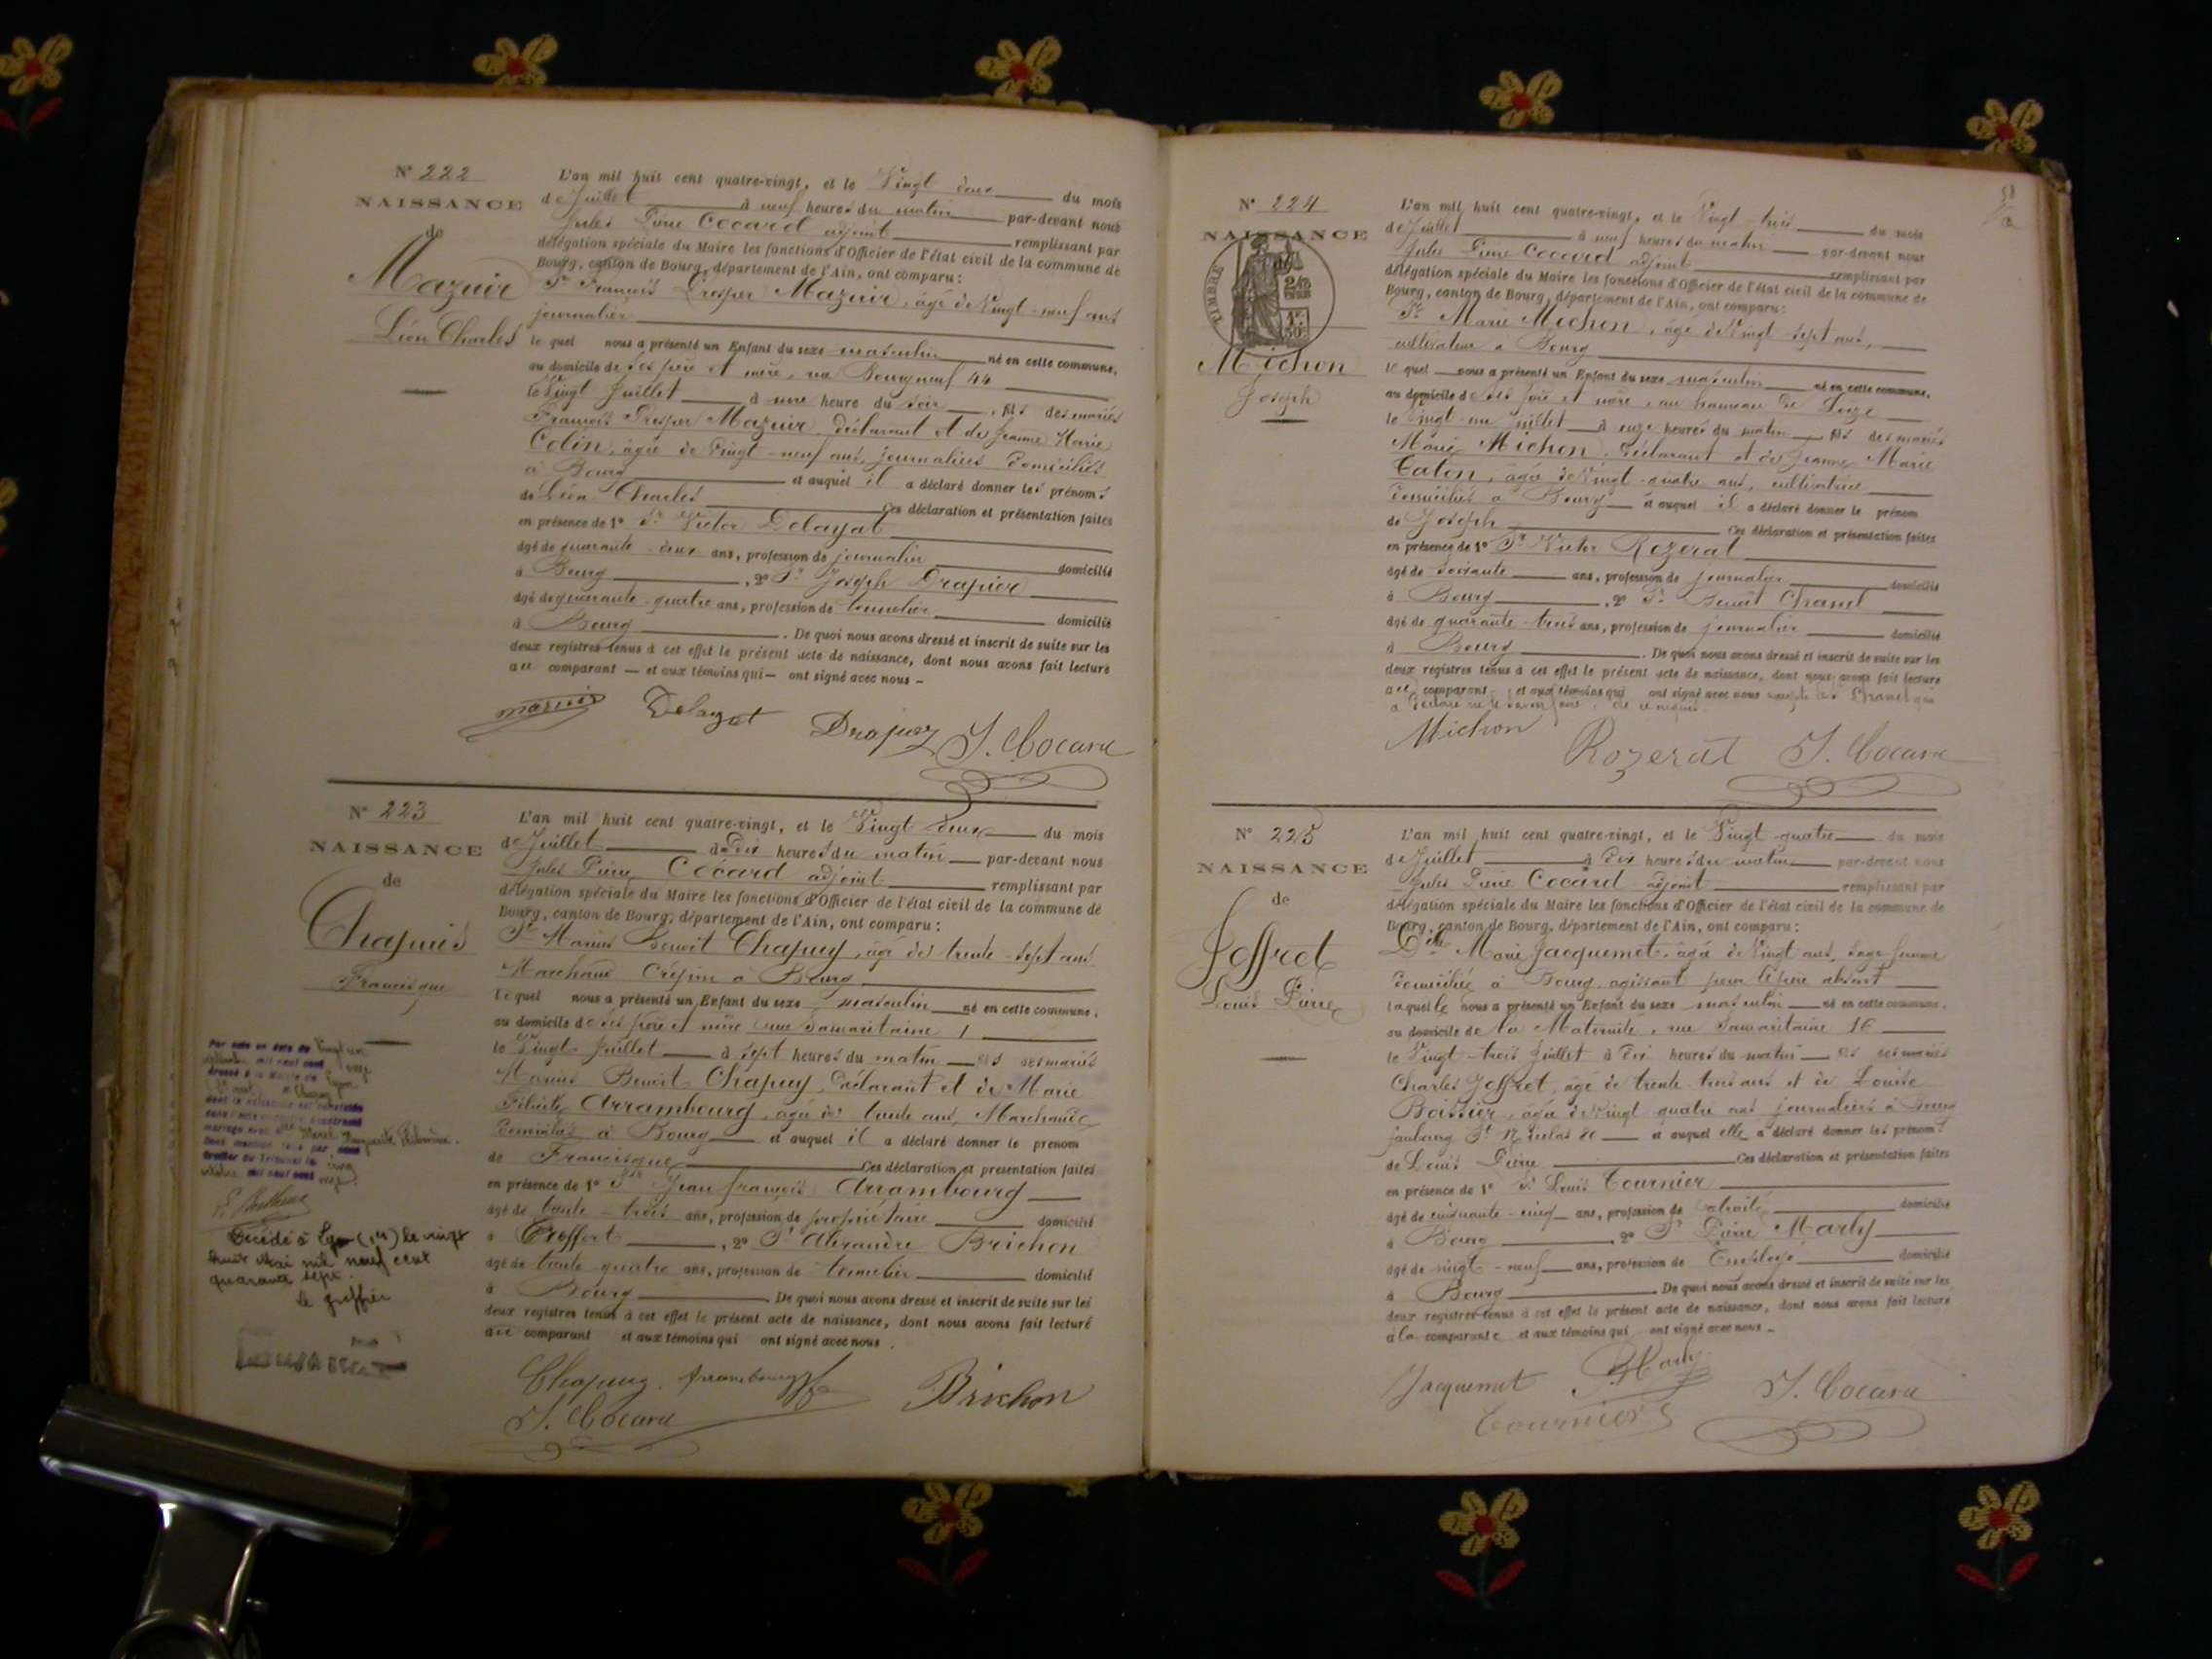 N° 222
NAISSANCE
de
Mazuir
Léon Charles
L'an mil huit cent quatre-vingt, et le Vingt deux du mois
de Juillet à neuf heures du matin par-devant nous
Jules Pierre Cocard adjoint remplissant par
délégation spéciale du Maire les fonctions d'Officier de l'état civil de la commune de
Bourg, canton de Bourg, département de l'Ain, ont comparu :
Sr François Prosper Mazuir, âgé de Vingt-neuf ans
journalier
le quel nous a présenté un Enfant du sexe masculin né en cette commune,
au domicile de ses père et mère, rue Bourgneuf 44
le Vingt Juillet à une heure du soir, fils des mariés
François Prosper Mazuir, déclarant et de Jeanne Marie
Colin, âgée de Vingt-neuf ans, journaliers domiciliés
à Bourg et auquel il a déclaré donner les prénoms
de Léon Charles Ces déclaration et présentation faites
en présence de 1° Sr Victor Delayat
âgé de quarante-deux ans, profession de journalier domicilié
à Bourg, 2° Sr Joseph Drapier
âgé de quarante-quatre ans, profession de tonnelier domicilié
à Bourg. De quoi nous avons dressé et inscrit de suite sur les
deux registres tenus à cet effet le présent acte de naissance, dont nous avons fait lecture
au comparant — et aux témoins qui — ont signé avec nous –
mazuir Delayat Drapier J. Cocard
N° 223
NAISSANCE
de
Chapuis
Francisque
L'an mil huit cent quatre-vingt, et le Vingt deux du mois
de Juillet à Dix heures du matin par-devant nous
Jules Pierre Cocard adjoint remplissant par
délégation spéciale du Maire les fonctions d'Officier de l'état civil de la commune de
Bourg, canton de Bourg, département de l'Ain, ont comparu :
Sr Marius Benoit Chapuy, âgé de trente-sept ans
Marchand Crépin à Bourg
le quel nous a présenté un Enfant du sexe masculin né en cette commune,
au domicile de ses père et mère rue Samaritaine 1
le Vingt Juillet à sept heures du matin fils des mariés
Marius Benoit Chapuy, déclarant et de Marie
Arrambourg, âgée de trente ans, Marchande
domiciliés à Bourg et auquel il a déclaré donner le prénom
de Francisque Ces déclaration et présentation faites
en présence de 1° Sr Jean François Arrambourg
âgé de trente-trois ans, profession de propriétaire domicilié
à Treffort, 2° Sr Alexandre Brichon
âgé de trente quatre ans, profession de tonnelier domicilié
à Bourg. De quoi nous avons dressé et inscrit de suite sur les
deux registres tenus à cet effet le présent acte de naissance, dont nous avons fait lecture
au comparant et aux témoins qui ont signé avec nous.
Chapuy. Arrambourg Brichon
J. Cocard
Par acte en date du Vingt un
mil neuf cent
dressé à la Mairie de Lyon
Chapuy
dont la naissance est constatée
mariage avec Marguerite
Dont mention faite par nous
Greffier du Tribunal le cinq
octobre mil neuf cent
Décédé à Lyon le vingt
huit mai mil neuf cent
quarante sept.
le greffier
N° 224
NAISSANCE
de
TIMBRE
Michon
Joseph
L'an mil huit cent quatre-vingt, et le Vingt-trois du mois
de Juillet à neuf heures du matin par-devant nous
Jules Pierre Cocard adjoint remplissant par
délégation spéciale du Maire les fonctions d'Officier de l'état civil de la commune de
Bourg, canton de Bourg, département de l'Ain, ont comparu :
Sr Marie Michon, âgé de Vingt sept ans,
cultivateur à Bourg
le quel nous a présenté un Enfant du sexe masculin né en cette commune,
au domicile de ses père et mère, au hameau de
le Vingt-un juillet à onze heures du matin fils des mariés
Marie Michon, déclarant et de Jeanne Marie
Caton, âgée de Vingt-quatre ans, cultivatrice
domiciliés à Bourg et auquel il a déclaré donner le prénom
de Joseph Ces déclaration et présentation faites
en présence de 1° Sr Victor Rozerat
âgé de soixante ans, profession de journalier domicilié
à Bourg, 2° Sr Benoit Chanel
âgé de quarante-trois ans, profession de journalier domicilié
à Bourg. De quoi nous avons dressé et inscrit de suite sur les
deux registres tenus à cet effet le présent acte de naissance, dont nous avons fait lecture
au comparant et aux témoins qui ont signé avec nous Chanel qui
a déclaré ne le savoir de ce requis
Michon Rozerat J. Cocard
N° 225
NAISSANCE
de
Joffret
Louis Pierre
L'an mil huit cent quatre-vingt, et le Vingt-quatre du mois
de Juillet à Dix heures du matin par-devant nous
Jules Pierre Cocard adjoint remplissant par
délégation spéciale du Maire les fonctions d'Officier de l'état civil de la commune de
Bourg, canton de Bourg, département de l'Ain, ont comparu :
Dlle Marie Jacquemet, âgée de Vingt ans, sage-femme
domiciliée à Bourg, agissant pour le père absent
laquelle nous a présenté un Enfant du sexe masculin né en cette commune,
au domicile de la Maternité, rue Samaritaine 16
le Vingt-trois Juillet à Dix heures du matin fils des mariés
Charles Joffret, âgé de trente-trois ans et de Louise
Boissier, âgée de Vingt quatre ans journaliers à Bourg
faubourg St Nicolas et auquel elle a déclaré donner les prénoms
de Louis Pierre Ces déclaration et présentation faites
en présence de 1° Sr Louis Tournier
âgé de cinquante-cinq ans, profession de retraité domicilié
à Bourg 2° Sr Pierre Marly
âgé de vingt-neuf ans, profession de Employé domicilié
à Bourg. De quoi nous avons dressé et inscrit de suite sur les
deux registres tenus à cet effet le présent acte de naissance, dont nous avons fait lecture
à la comparante et aux témoins qui ont signé avec nous –
Jacquemet Marly J. Cocard
Tournier